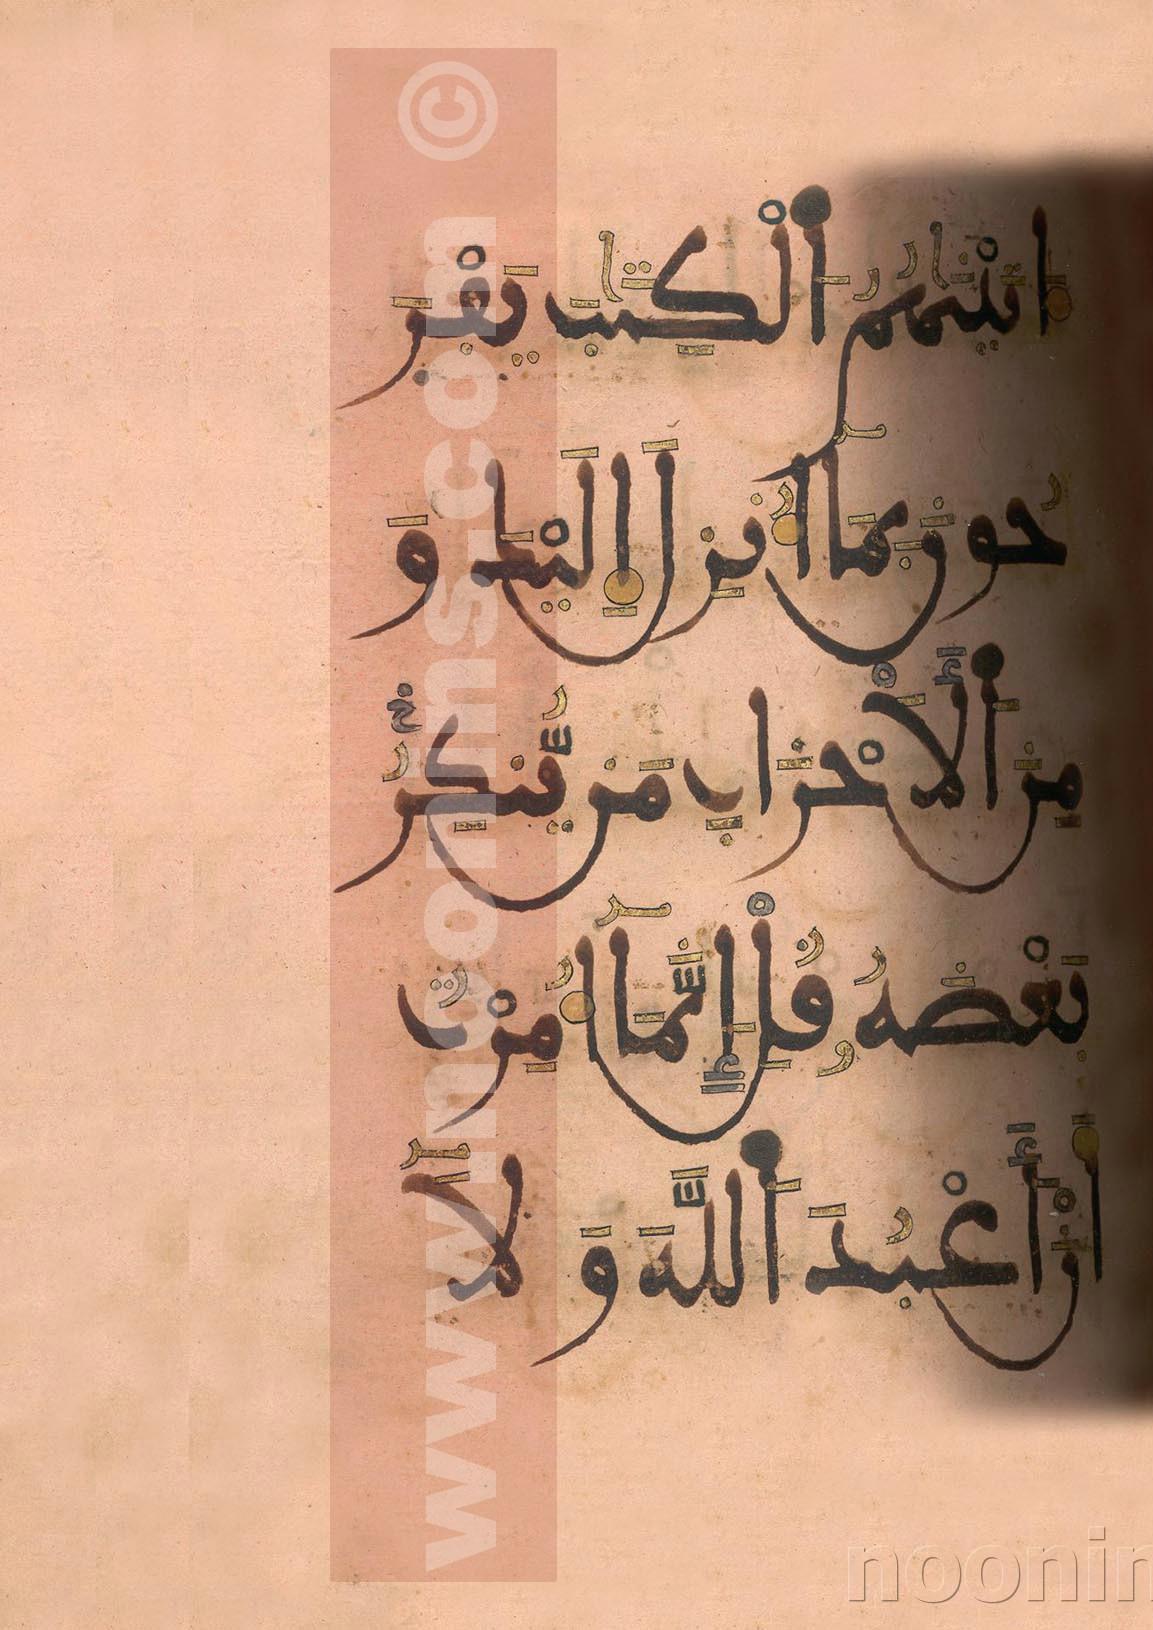 اتينهم الكتب يفر
حون بما انزل اليك و
من الاحزاب من ينكر
بعضه قل انما امرت
ان اعبد الله و لا
www.noonins.com ©
noonin